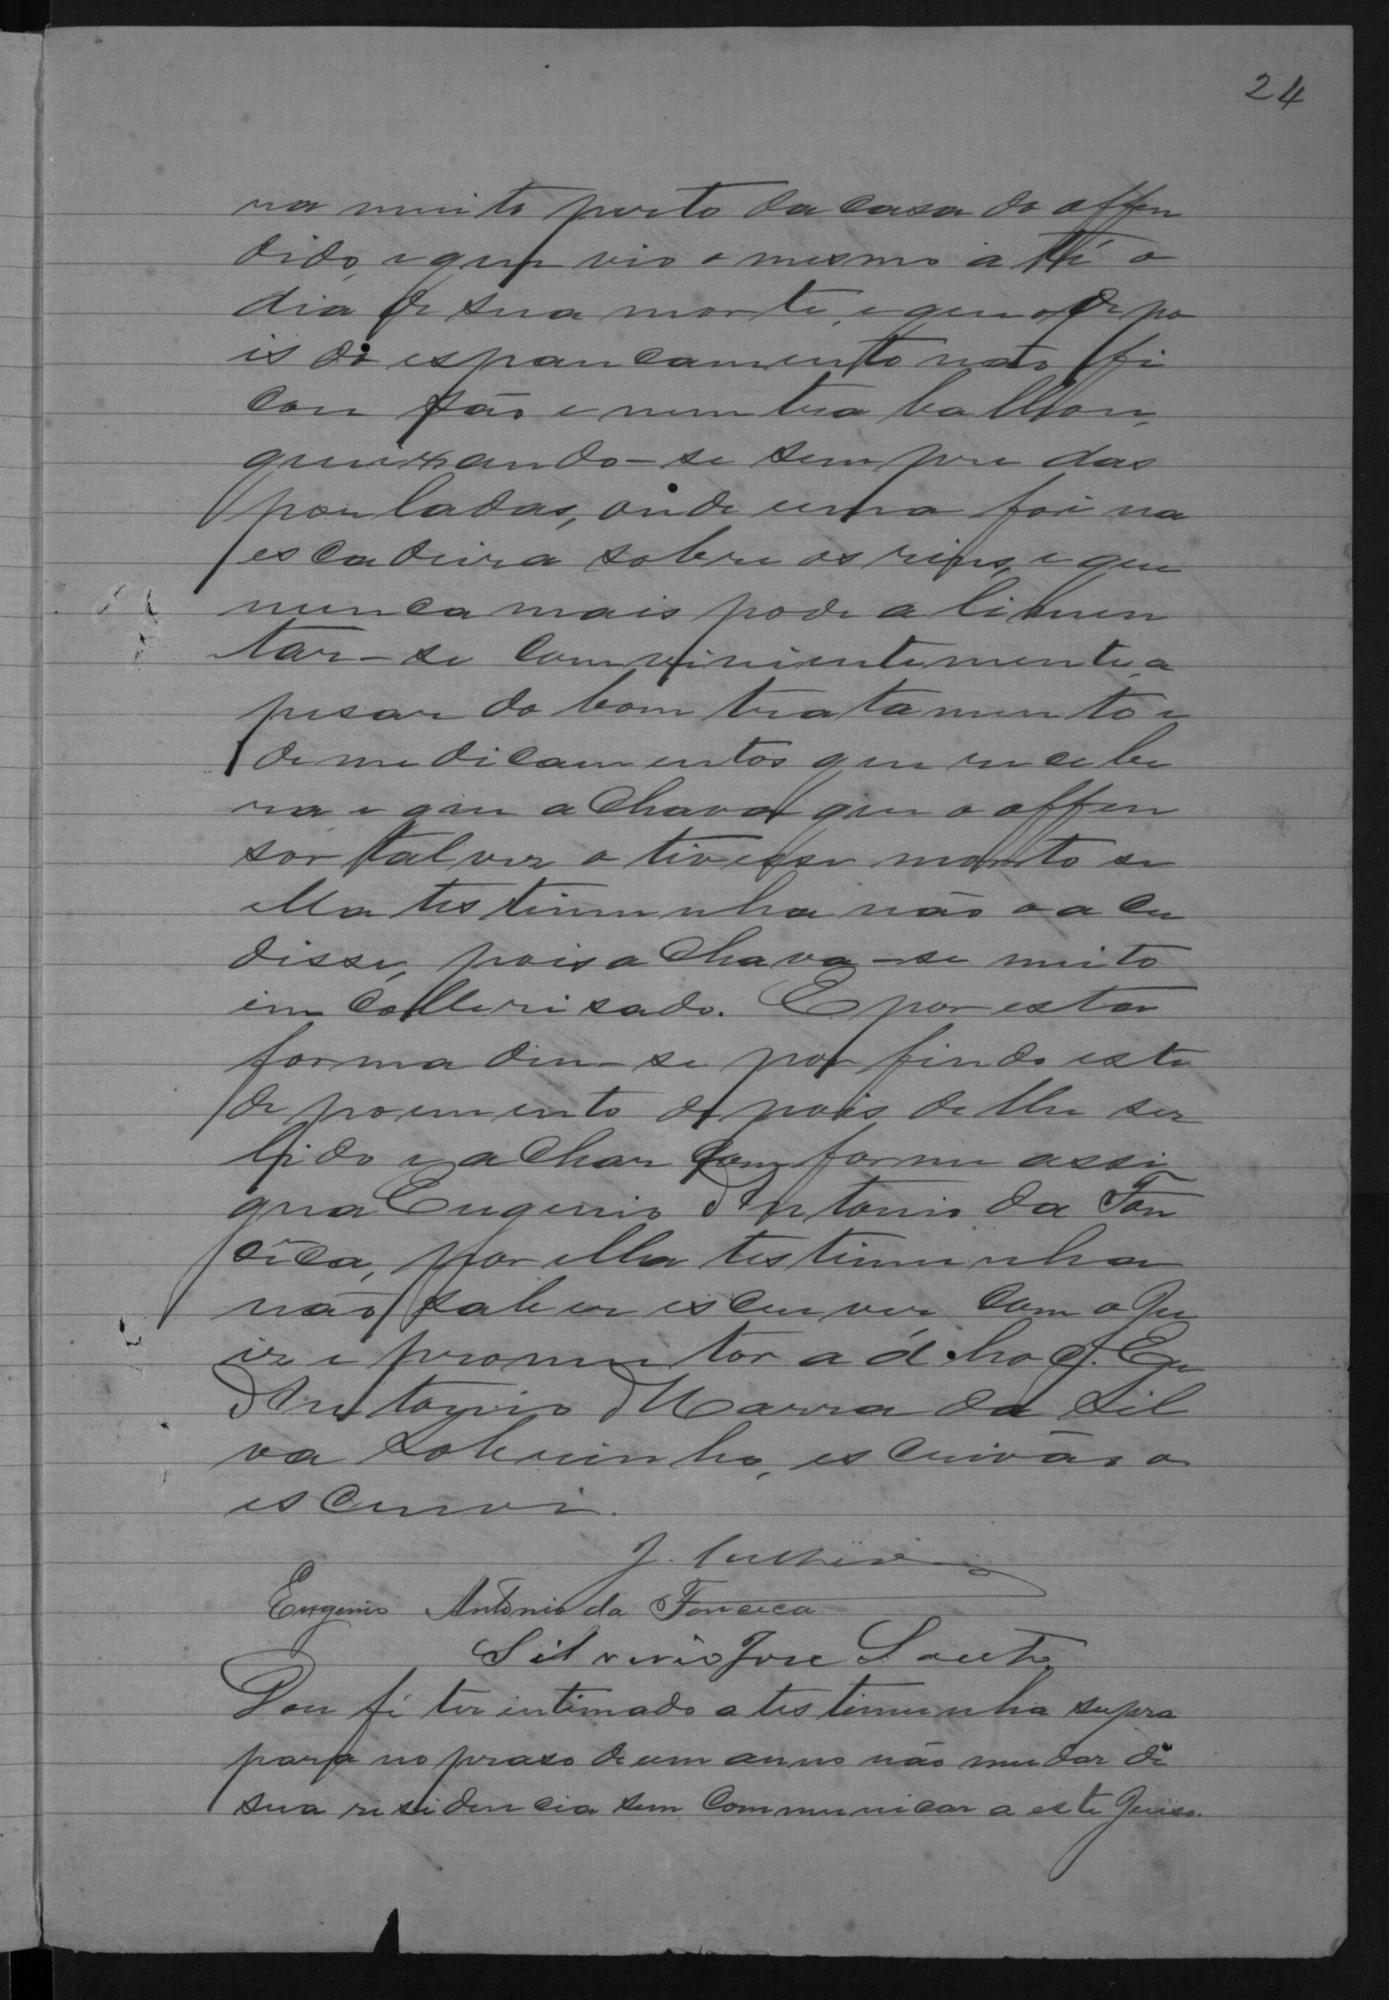 24
ra muito perto da casa do offen
dido, e que vio o mesmo até o
dia de sua morte, e que depo
is do espancamento não fi
cou são e nem trabalhou,
queixando-se sempre das
pauladas, onde uma foi na
escadeira sobre os rins, e que
nunca mais pode alimen
tar-se convinientemente, a
pesar do bom tratamento e
de medicamentos que recebe
ra e que achava que o offen
sor talvez o tivesse morto se
ella testimunha não o acu
disse, pois achava-se muito
incollerisado. E por esta
forma deu-se por findo este
depoimento depois de lhe ser
lido e achar conforme assi
gna Eugenio Antonio da Fon
sêca, por ella testimunha
não saber escrever, com o Ju
iz e promotor ad-hoc. Eu
Antonio Marra da Sil
va Sobrinho, escrivão o
escrevi.
J.
Eugenio Antonio da Fonceca
Silverio Jose
Dou fé ter intimado a testimunha supra
para no praso de um anno não mudar de
sua residencia sem communicar a este Juiso.